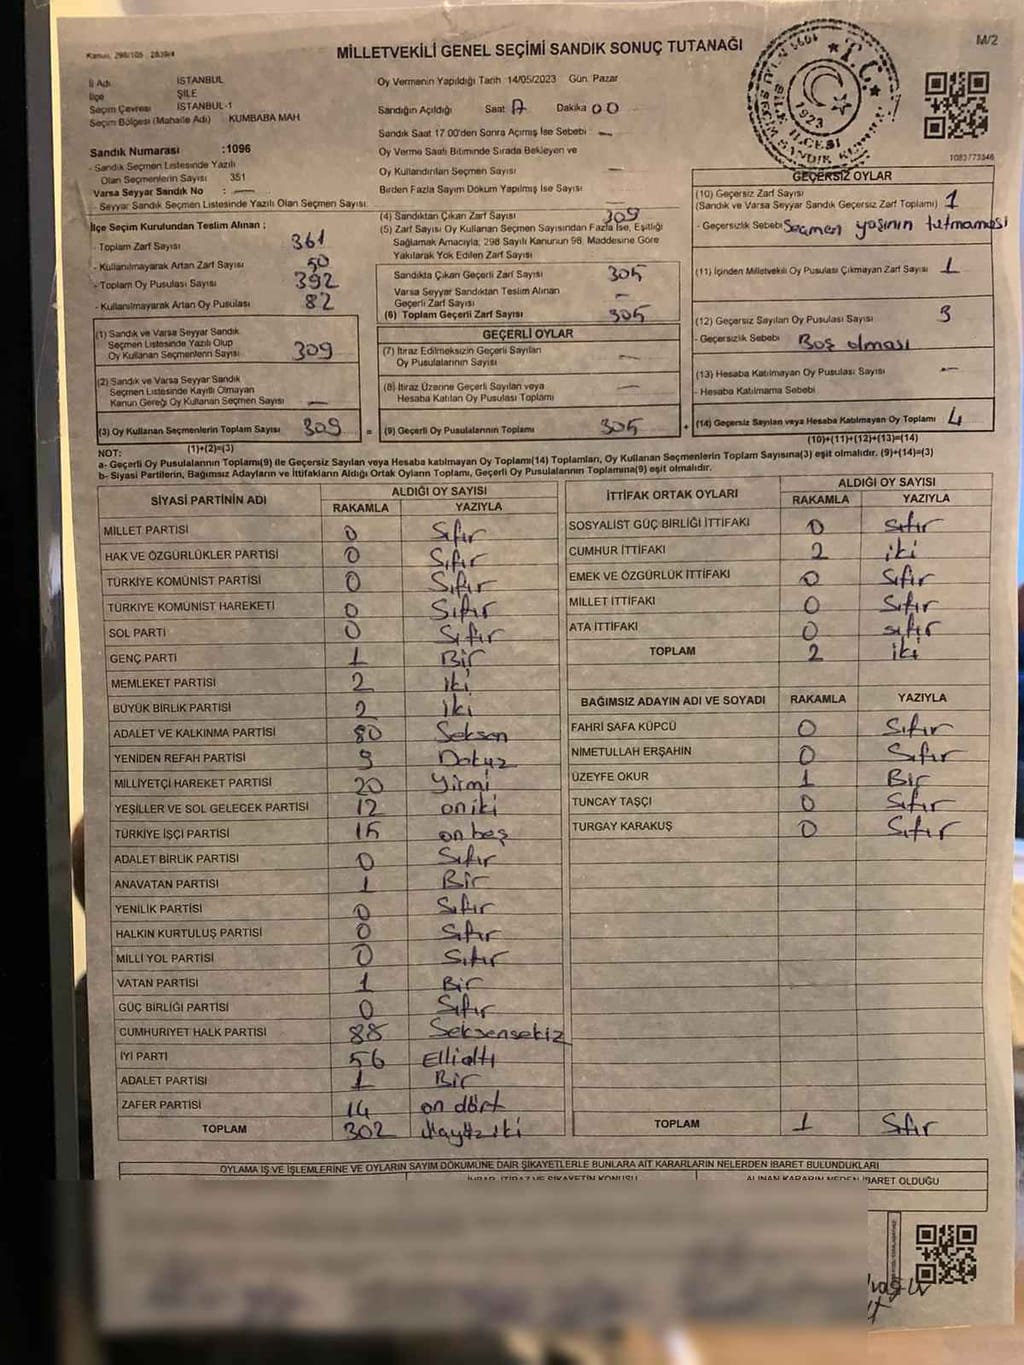 Kanun: 298/105 2839/4
MİLLETVEKİLİ GENEL SEÇİMİ SANDIK SONUÇ TUTANAĞI
M/2
İl Adı İSTANBUL
İlçe ŞİLE
Seçim Çevresi İSTANBUL-1
Seçim Bölgesi (Mahalle Adı) KUMBABA MAH
Sandık Numarası :1096
- Sandık Seçmen Listesinde Yazılı
Olan Seçmenlerin Sayısı 351
Varsa Seyyar Sandık No : —
- Seyyar Sandık Seçmen Listesinde Yazılı Olan Seçmen Sayısı:
İlçe Seçim Kurulundan Teslim Alınan ;
- Toplam Zarf Sayısı 361
- Kullanılmayarak Artan Zarf Sayısı 50
- Toplam Oy Pusulası Sayısı 392
- Kullanılmayarak Artan Oy Pusulası 82
(1) Sandık ve Varsa Seyyar Sandık
Seçmen Listesinde Yazılı Olup
Oy Kullanan Seçmenlerin Sayısı 309
(2) Sandık ve Varsa Seyyar Sandık
Seçmen Listesinde Kayıtlı Olmayan
Kanun Gereği Oy Kullanan Seçmen Sayısı —
(3) Oy Kullanan Seçmenlerin Toplam Sayısı 309
(1)+(2)=(3)
Oy Vermenin Yapıldığı Tarih 14/05/2023 Gün Pazar
Sandığın Açıldığı Saat 17 Dakika 00
Sandık Saat 17.00'den Sonra Açımış İse Sebebi —
Oy Verme Saati Bitiminde Sırada Bekleyen ve
Oy Kullandırılan Seçmen Sayısı —
Birden Fazla Sayım Döküm Yapılmış İse Sayısı —
(4) Sandıktan Çıkan Zarf Sayısı 309
(5) Zarf Sayısı Oy Kullanan Seçmen Sayısından Fazla İse, Eşitliği
Sağlamak Amacıyla, 298 Sayılı Kanunun 98. Maddesine Göre
Yakılarak Yok Edilen Zarf Sayısı
Sandıkta Çıkan Geçerli Zarf Sayısı 305
Varsa Seyyar Sandıktan Teslim Alınan
Geçerli Zarf Sayısı —
(6) Toplam Geçerli Zarf Sayısı 305
GEÇERLİ OYLAR
(7) İtiraz Edilmeksizin Geçerli Sayılan
Oy Pusulalarının Sayısı —
(8) İtiraz Üzerine Geçerli Sayılan veya
Hesaba Katılan Oy Pusulası Toplamı —
= (9) Geçerli Oy Pusulalarının Toplamı 305
T.C.
1923
1083773346
GEÇERSİZ OYLAR
(10) Geçersiz Zarf Sayısı
(Sandık ve Varsa Seyyar Sandık Geçersiz Zarf Toplamı) 1
- Geçersizlik Sebebi Seçmen yaşının tutmaması
(11) İçinden Milletvekili Oy Pusulası Çıkmayan Zarf Sayısı 1
(12) Geçersiz Sayılan Oy Pusulası Sayısı 3
- Geçersizlik Sebebi Boş olması
(13) Hesaba Katılmayan Oy Pusulası Sayısı —
- Hesaba Katılmama Sebebi
+ (14) Geçersiz Sayılan veya Hesaba Katılmayan Oy Toplamı 4
(10)+(11)+(12)+(13)=(14)
NOT:
a- Geçerli Oy Pusulalarının Toplamı(9) ile Geçersiz Sayılan veya Hesaba katılmayan Oy Toplamı(14) Toplamları, Oy Kullanan Seçmenlerin Toplam Sayısına(3) eşit olmalıdır. (9)+(14)=(3)
b- Siyasi Partilerin, Bağımsız Adayların ve İttifakların Aldığı Ortak Oyların Toplamı, Geçerli Oy Pusulalarının Toplamına(9) eşit olmalıdır.
SİYASİ PARTİNİN ADI ALDIĞI OY SAYISI
RAKAMLA YAZIYLA
MİLLET PARTİSİ 0 Sıfır
HAK VE ÖZGÜRLÜKLER PARTİSİ 0 Sıfır
TÜRKİYE KOMÜNİST PARTİSİ 0 Sıfır
TÜRKİYE KOMÜNİST HAREKETİ 0 Sıfır
SOL PARTİ 0 Sıfır
GENÇ PARTİ 1 Bir
MEMLEKET PARTİSİ 2 iki
BÜYÜK BİRLİK PARTİSİ 2 iki
ADALET VE KALKINMA PARTİSİ 80 Seksen
YENİDEN REFAH PARTİSİ 9 Dokuz
MİLLİYETÇİ HAREKET PARTİSİ 20 yirmi
YEŞİLLER VE SOL GELECEK PARTİSİ 12 oniki
TÜRKİYE İŞÇİ PARTİSİ 15 on beş
ADALET BİRLİK PARTİSİ 0 Sıfır
ANAVATAN PARTİSİ 1 Bir
YENİLİK PARTİSİ 0 Sıfır
HALKIN KURTULUŞ PARTİSİ 0 Sıfır
MİLLİ YOL PARTİSİ 0 Sıfır
VATAN PARTİSİ 1 Bir
GÜÇ BİRLİĞİ PARTİSİ 0 Sıfır
CUMHURİYET HALK PARTİSİ 88 Seksensekiz
İYİ PARTİ 56 Elli altı
ADALET PARTİSİ 1 Bir
ZAFER PARTİSİ 14 on dört
TOPLAM 302
İTTİFAK ORTAK OYLARI ALDIĞI OY SAYISI
RAKAMLA YAZIYLA
SOSYALİST GÜÇ BİRLİĞİ İTTİFAKI 0 sıfır
CUMHUR İTTİFAKI 2 iki
EMEK VE ÖZGÜRLÜK İTTİFAKI 0 Sıfır
MİLLET İTTİFAKI 0 Sıfır
ATA İTTİFAKI 0 sıfır
TOPLAM 2 iki
BAĞIMSIZ ADAYIN ADI VE SOYADI RAKAMLA YAZIYLA
FAHRİ SAFA KÜPCÜ 0 Sıfır
NİMETULLAH ERŞAHİN 0 Sıfır
ÜZEYFE OKUR 1 Bir
TUNCAY TAŞÇI 0 Sıfır
TURGAY KARAKUŞ 0 Sıfır
TOPLAM 1 Sıfır
OYLAMA İŞ VE İŞLEMLERİNE VE OYLARIN SAYIM DÖKÜMÜNE DAİR ŞİKAYETLERLE BUNLARA AİT KARARLARIN NELERDEN İBARET BULUNDUKLARI
İHBAR, İTİRAZ VE ŞİKAYETİN KONUSU ALINAN KARARIN NEDEN İBARET OLDUĞU